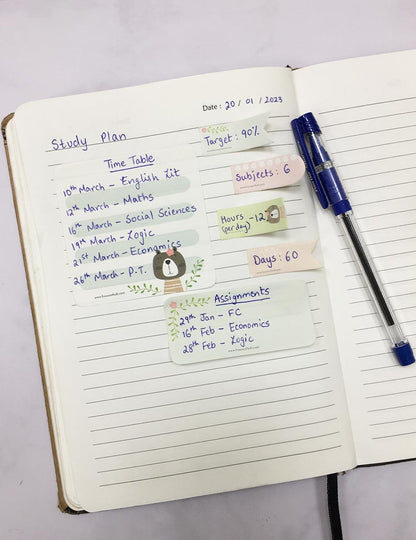 Date: 20 / 01 / 2023
Study Plan
Target: 90%
Time Table
10th March - English Lit
12th March - Maths
16th March - Social Sciences
19th March - Logic
21st March - Economics
26th March - P.T.
Subjects: 6
Hours
(per day) - 12
Days: 60
Assignments
29th Jan - FC
16th Feb - Economics
28th Feb - Logic